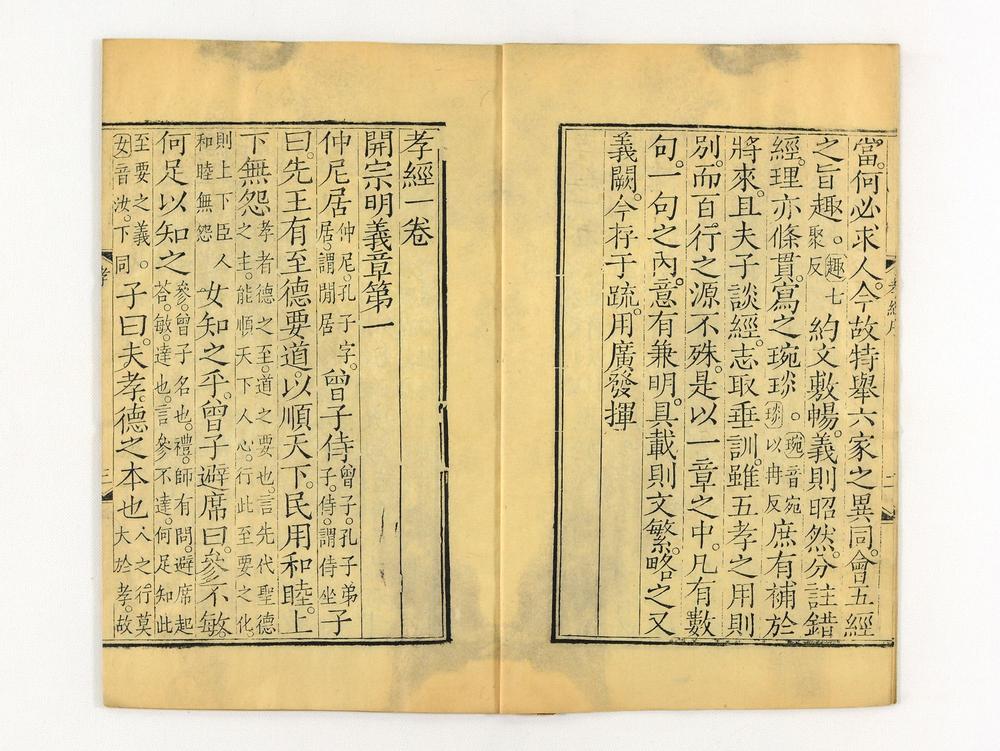 當。何必求人。今故特舉六家之異同。會五經
之旨趣。趣七聚反約文敷暢。義則昭然。分註錯
經。理亦條貫。寫之琬琰。琬音宛琰以冉反庶有補於
將來。且夫子談經。志取垂訓。雖五孝之用則
別。而百行之源不殊。是以一章之中。凡有數
句。一句之內。意有兼明。具載則文繁。略之又
義闕。今存于疏。用廣發揮
孝經一卷
開宗明義章第一
仲尼居仲尼。孔子字。居。謂閒居曾子侍曾子。孔子弟子。侍。謂侍坐子
曰。先王有至德要道。以順天下。民用和睦。上
下無怨孝者德之至。道之要也。言先代聖德之主。能順天下人心。行此至要之化。
則上下臣人和睦無怨女知之乎。曾子避席曰。參不敏
何足以知之參。曾子名也。禮。師有問。避席起荅。敏。達也。言參不達。何足知此
至要之義。女音汝。下同子曰。夫孝。德之本也人之行莫大於孝。故